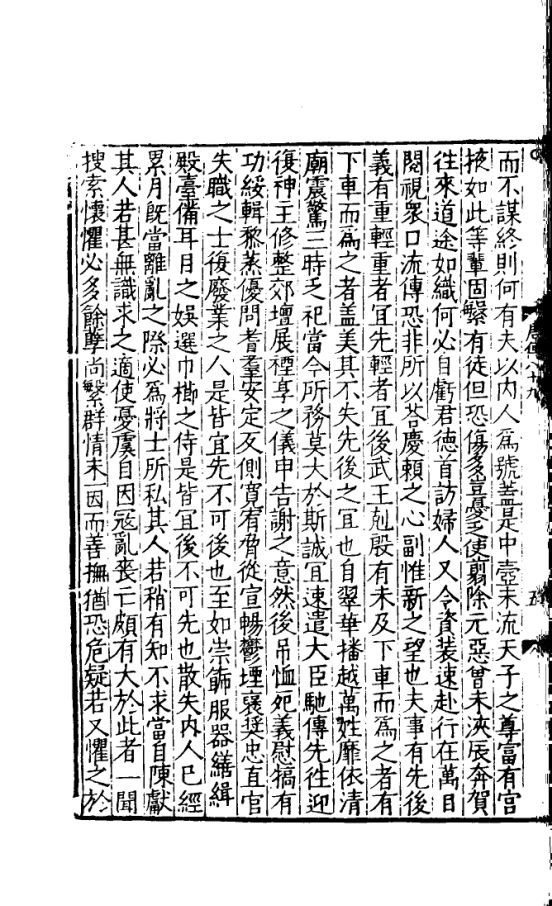 而不謀終則何有夫以内人爲號蓋是中壼末流天子之尊富有宮
掖如此等輩固繁有徒但恐傷多豈憂乏使翦除元惡曾未浹辰奔賀
往來道途如織何必自虧君德首訪婦人又令資裝速赴行在萬目
閱視衆口流傳恐非所以荅慶賴之心副惟新之望也夫事有先後
義有重輕重者宜先輕者宜後武王剋殷有未及下車而爲之者有
下車而爲之者盖美其不失先後之宜也自翠華播越萬姓靡依清
廟震驚三時乏祀當今所務莫大於斯誠宜速遣大臣馳傳先往迎
復神主修整郊壇展禋享之儀申告謝之意然後吊恤死義慰犒有
功綏輯黎蒸優問耆耋安定反側寬宥脅從宣暢鬱堙襃奬忠直官
失職之士復廢業之人是皆宜先不可後也至如崇飾服器繕緝
殿臺備耳目之娛選巾櫛之侍是皆宜後不可先也散失内人已經
累月旣當離亂之際必爲將士所私其人若稍有知不求當自陳獻
其人若甚無識求之適使憂虞自因寇亂喪亡頗有大於此者一聞
搜索懷懼必多餘孽尚繁群情未因而善撫猶恐危疑若又懼之於
五